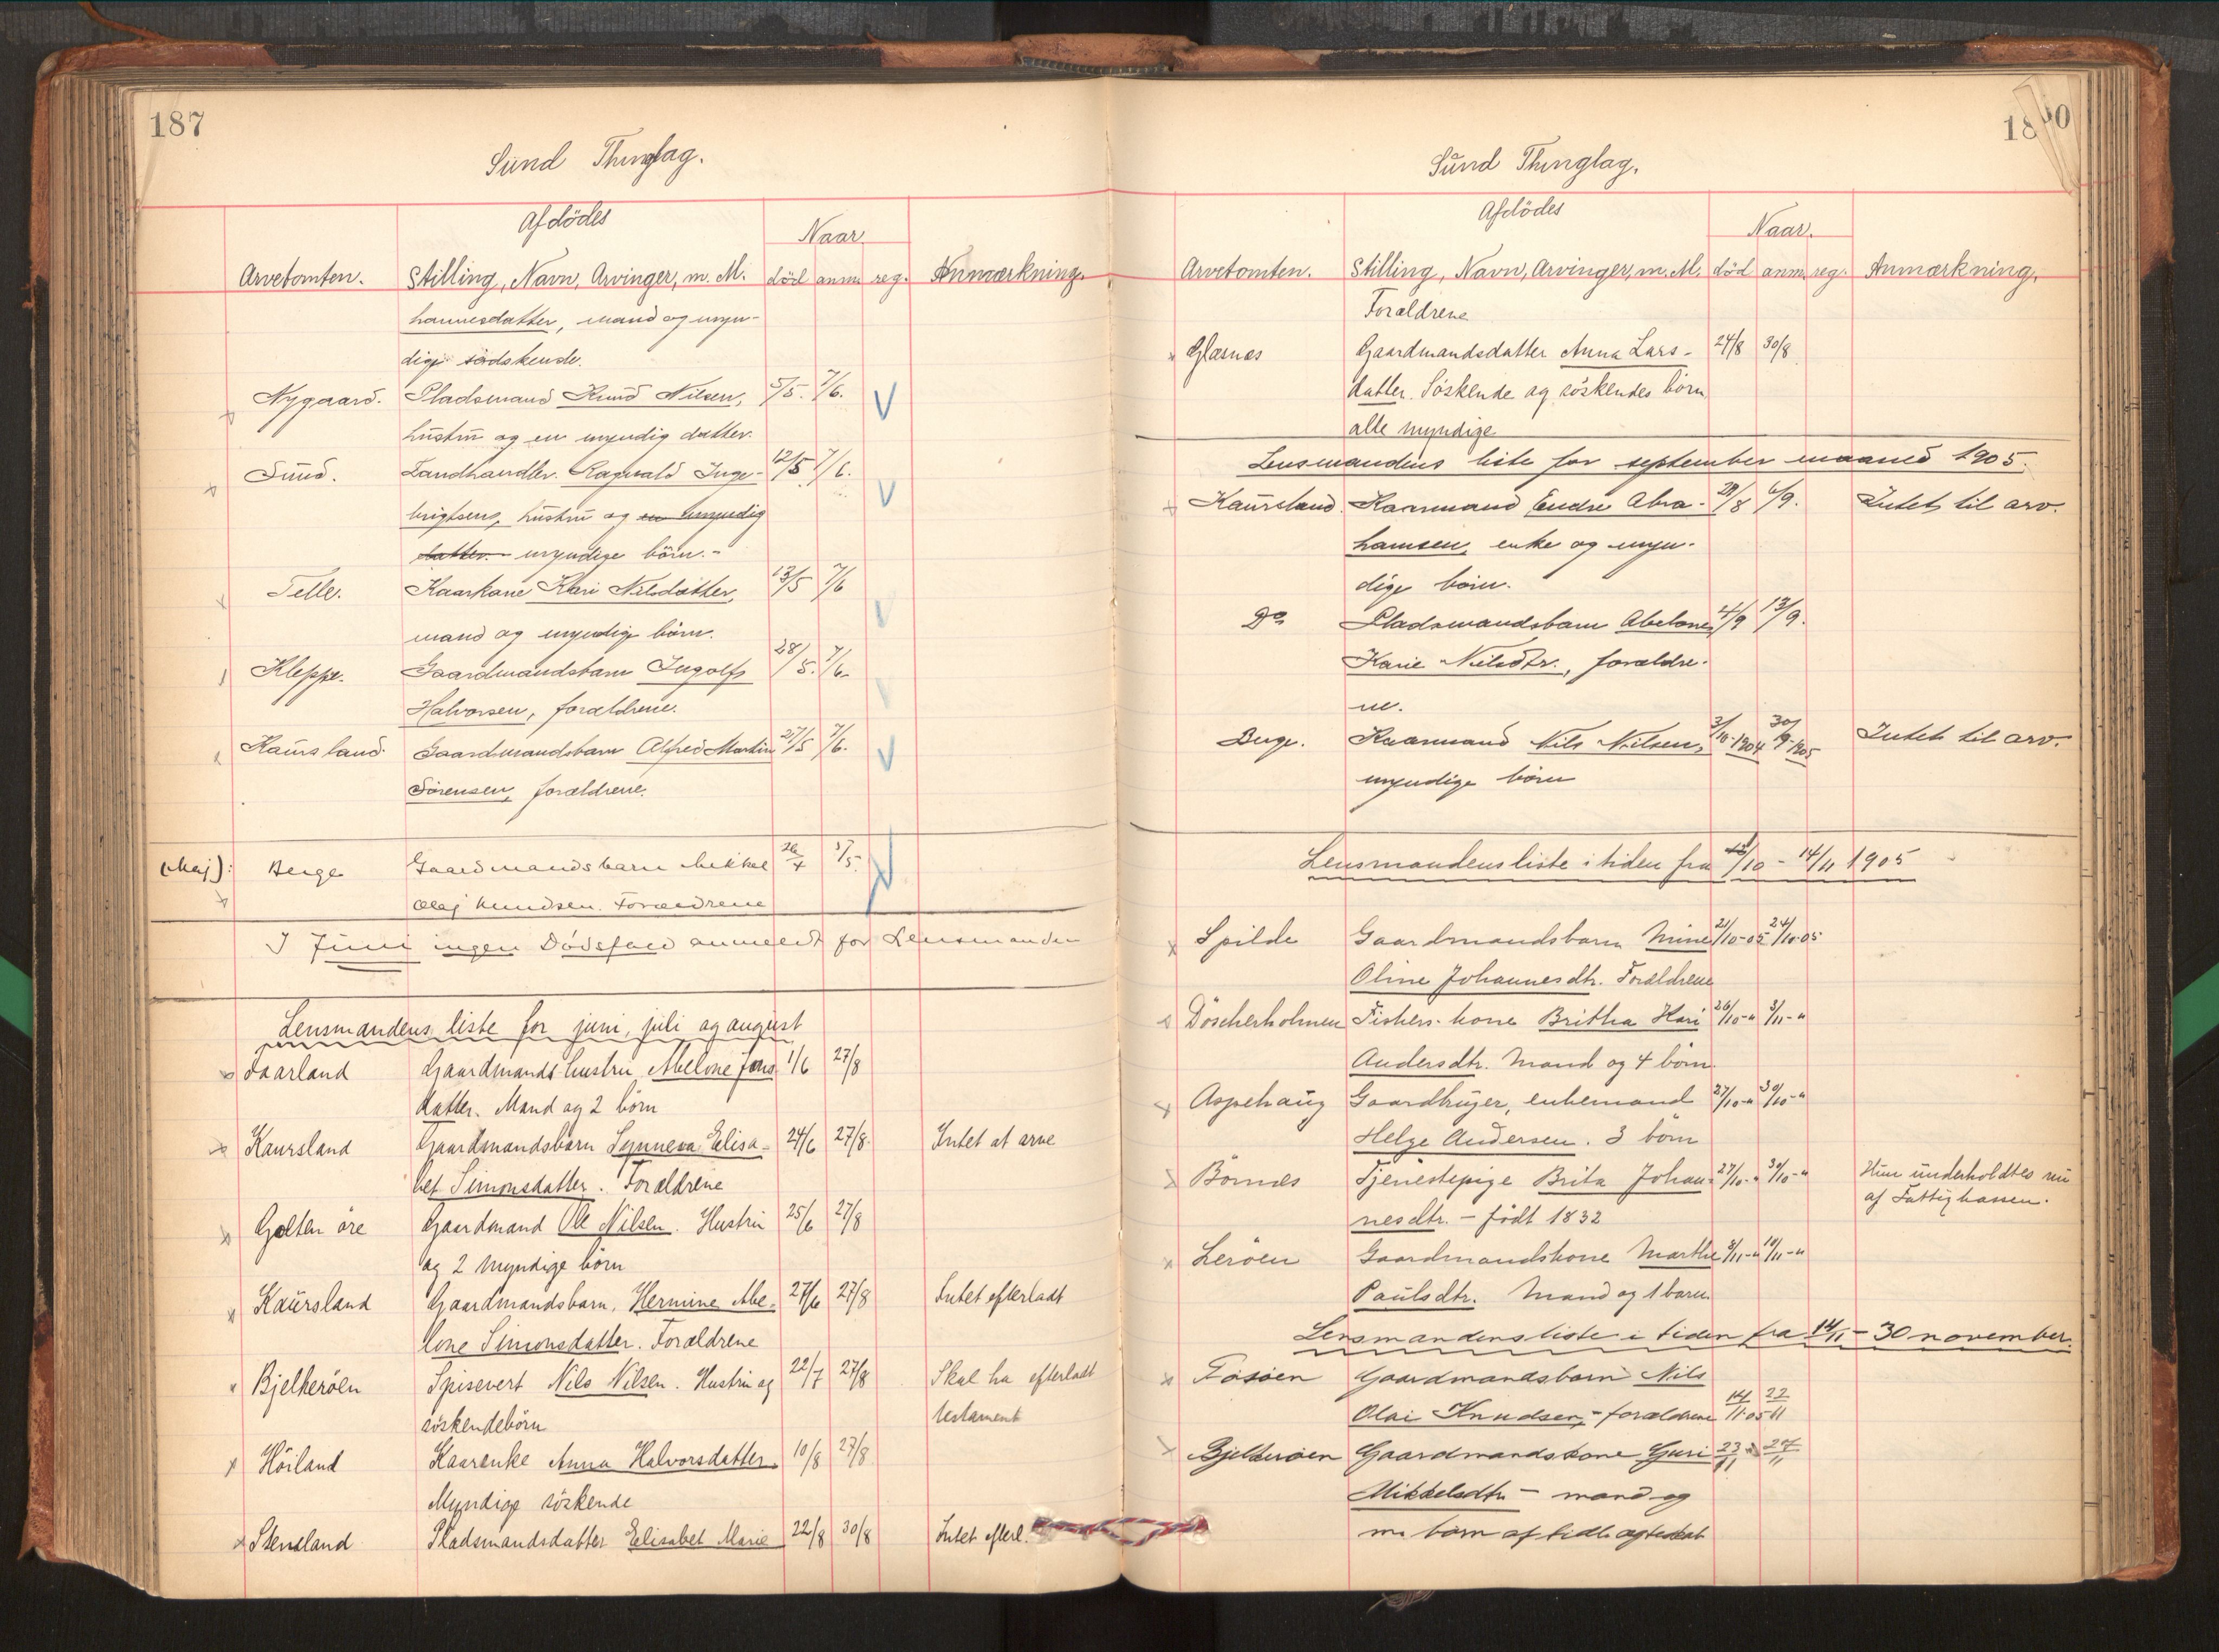 187
Sund Thinglag.
Afdödes
Naar
Arvetomten. Stilling, Navn, Arvinger, m. M. död anm. reg. Anmærkning.
hannesdatter, mand og myn-
dige södskende.
Nygaard. Pladsmand Knud Nilsen, 5/5. 7/6.
hustru og en myndig datter.
Sund. Landhandler Ragnvald Inge- 12/5 7/6.
brigtsen, hustru og en umyndig
datter myndige börn.-
Telle. Kaarkone Kari Nilsdatter, 13/5 7/6
mand og myndige börn.
Kleppe. Gaardmandsbarn Ingolf 28/5. 7/6.
Halvorsen, forældrene.
Kausland. Gaardmandsbarn Alfred Martin 27/5 7/6.
Sörensen, forældrene.
(Maj): Berge Gaardmandsbarn Mikkel 26/4 5/5.
Olaj Knudsen. Forældrene
I Juni ingen Dödsfald anmeldt for Lensmanden
Lensmandens liste for juni, juli og august
Faarland Gaardmands hustru Abelone Jons 1/6 27/8
datter. Mand og 2 börn
Kaursland Gaardmandsbarn Synneva Elisa- 24/6 27/8. Intet at arve
bet Simonsdatter. Forældrene
Golten öre Gaardmand Ole Nilsen. Hustru 25/6 27/8
og 2 myndige börn
Kaursland Gaardmandsbarn, Hermine Abe- 27/6 27/8 Intet efterladt
lone Simonsdatter. Forældrene
Bjelkeröen Spisevert Nils Nilsen. Hustru og 22/7 27/8 Skal ha efterladt
söskendebörn testament
Höiland Kaarenke Anna Halvorsdatter. 10/8 27/8
Myndige söskende
Steinsland Pladsmandsdatter Elisabet Marie 22/8 30/8 Intet efterl.
18
Sund Thinglag.
Afdödes
Naar.
Arvetomten. Stilling, Navn, Arvinger, m. M. död anm. reg. Anmærkning.
Forældrene
Glæsnæs Gaardmandsdatter Anna Lars- 24/8 30/8
datter. Söskende og söskendes börn
alle myndige
Lensmandens liste for september maaned 1905.
Kaursland Kaarmand Endre Abra- 29/8 6/9. Intet til arv.
hamsen, enke og myn-
dige börn.
Do Pladsmandsbarn Abelone 4/9 13/9.
Karie Nilsdtr., forældre-
ne.
Berge. Kaarmand Nils Nilsen, 3/10-1904 30/9-1905 Intet til arv.
myndige börn
Lensmandens liste i tiden fra /10 - 14/11 1905
Spilde Gaardmandsbarn Mine 21/10-05 24/10-05
Oline Johannesdtr. Forældrene
Döscherholmen Fisker-kone Britha Kari 26/10-" 3/11-"
Andersdtr. Mand og 4 börn.
Aspehaug Gaardbruger, enkemand 27/10-" 30/10-"
Helge Andersen. 3 börn
Börnes Tjenestepige Brita Johan- 27/10-" 30/10-" Hun underholdtes nu
nesdtr. - födt 1832 af Fattigkassen.
Leröen Gaardmandskone Marthe 8/11-" 10/11-"
Paulsdtr. Mand og 1 barn.
Lensmandens liste i tiden fra 14/11 - 30 november.
Tösöen Gaardmandsbarn Nils
Olai Knudsen, - forældrene 14/11.05 22/11
Bjelkeröen Gaardmandskone Guri 23/11 27/11
Mikkelsdtr - mand og
börn af tidl. ægteskab